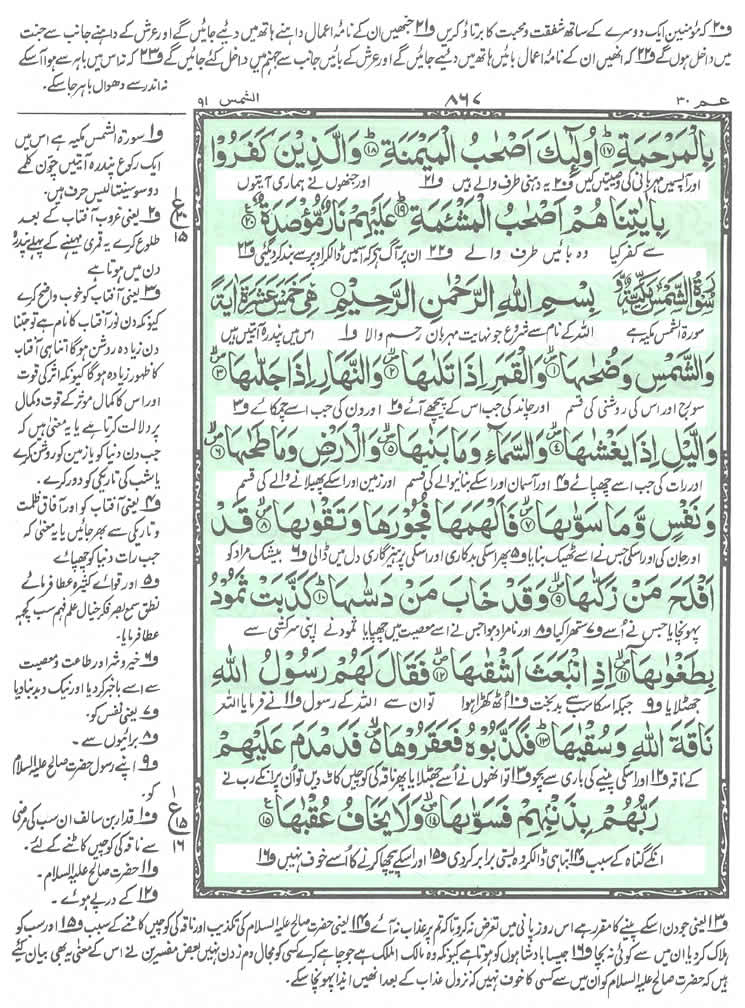 ف۲۰ کہ مؤمنین ایک دوسرے کے ساتھ شفقت و محبت کا برتاؤ کریں ف۲۱ جنھیں ان کے نامۂ اعمال داہنے ہاتھ میں دئیے جائیں گے اور عرش کے داہنے جانب سے جنت
میں داخل ہوں گے ف۲۲ کہ انھیں ان کے نامۂ اعمال بائیں ہاتھ میں دئیے جائیں گے اور عرش کے بائیں جانب سے جہنم میں داخل کئے جائیں گے ف۲۳ کہ نہ اس میں باہر سے ہوا آ سکے
نہ اندر سے دھواں باہر جا سکے۔
عـم ۳۰
۸۶۷
الشمس ۹۱
بِالْمَرْحَمَةِ ﴿۱۷﴾ اُولٰٓئِكَ اَصْحٰبُ الْمَیْمَنَةِ ﴿۱۸﴾ وَالَّذِیْنَ كَفَرُوْا
اور آپس میں مہربانی کی وصیتیں کیں ف۲۰ یہ دہنی طرف والے ہیں ف۲۱ اور جنھوں نے ہماری آیتوں
بِاٰیٰتِنَا هُمْ اَصْحٰبُ الْمَشْـَٔمَةِ ﴿۱۹﴾ عَلَیْهِمْ نَارٌ مُّؤْصَدَةٌ ﴿۲۰﴾
سے کفر کیا وہ بائیں طرف والے ف۲۲ ان پر آگ ہے کہ اس میں ڈال کر اوپر سے بند کر دی گئی ف۲۳
سُوْرَةُ الشَّمْسِ مَكِّیَّةٌ بِسْمِ اللهِ الرَّحْمٰنِ الرَّحِیْمِ هِیَ خَمْسَ عَشَرَةَ اٰیَةً
سورۂ الشمس مکیہ ہے اللہ کے نام سے شروع جو نہایت مہربان رحم والا ف۱ اس میں پندرہ آیتیں ہیں
وَالشَّمْسِ وَضُحٰىهَا ﴿۱﴾ وَالْقَمَرِ اِذَا تَلٰىهَا ﴿۲﴾ وَالنَّهَارِ اِذَا جَلّٰىهَا ﴿۳﴾
سورج اور اس کی روشنی کی قسم اور چاند کی جب اس کے پیچھے آئے ف۲ اور دن کی جب اسے چمکائے ف۳
وَالَّیْلِ اِذَا یَغْشٰىهَا ﴿۴﴾ وَالسَّمَآءِ وَمَا بَنٰىهَا ﴿۵﴾ وَالْاَرْضِ وَمَا طَحٰىهَا ﴿۶﴾
اور رات کی جب اسے چھپائے ف۴ اور آسمان اور اسکے بنانے والے کی قسم اور زمین اور اسکے پھیلانے والے کی قسم
وَنَفْسٍ وَّمَا سَوّٰىهَا ﴿۷﴾ فَاَلْهَمَهَا فُجُوْرَهَا وَتَقْوٰىهَا ﴿۸﴾ قَدْ
اور جان کی اور اسکی جس نے اسے ٹھیک بنایا ف۵ پھر اسکی بدکاری اور اسکی پرہیزگاری دل میں ڈالی ف۶ بیشک مراد کو
اَفْلَحَ مَنْ زَكّٰىهَا ﴿۹﴾ وَقَدْ خَابَ مَنْ دَسّٰىهَا ﴿۱۰﴾ كَذَّبَتْ ثَمُوْدُ
پہونچایا جس نے اُسے ف۷ ستھرا کیا ف۸ اور نامراد ہوا جس نے اسے معصیت میں چھپایا ثمود نے اپنی سرکشی سے
بِطَغْوٰىهَا ﴿۱۱﴾ اِذِ انْۢبَعَثَ اَشْقٰىهَا ﴿۱۲﴾ فَقَالَ لَهُمْ رَسُوْلُ اللهِ
جھٹلایا ف۹ جبکہ اسکا سب سے بدبخت ف۱۰ اُٹھ کھڑا ہوا تو ان سے اللہ کے رسول ف۱۱ نے فرمایا اللہ
نَاقَةَ اللهِ وَسُقْیٰهَا ﴿۱۳﴾ فَكَذَّبُوْهُ فَعَقَرُوْهَا فَدَمْدَمَ عَلَیْهِمْ
کے ناقہ ف۱۲ اور اسکی پینے کی باری سے بچو ف۱۳ تو انھوں نے اُسے جھٹلایا پھر ناقہ کی کوچیں کاٹ دیں تو اُن پر انکے رب نے
رَبُّهُمْ بِذَنْۢبِهِمْ فَسَوّٰىهَا ﴿۱۴﴾ وَلَا یَخَافُ عُقْبٰهَا ﴿۱۵﴾
انکے گناہ کے سبب ف۱۴ تباہی ڈال کر وہ بستی برابر کر دی ف۱۵ اور اسکے پیچھا کرنے کا اُسے خوف نہیں ف۱۶
ف۱ سورۃ الشمس مکیہ ہے اس میں
ایک رکوع پندرہ آیتیں چوّن کلمے
دو سو سینتالیس حرف ہیں۔
ف۲ یعنی غروبِ آفتاب کے بعد
طلوع کرے یہ قمری مہینے کے پہلے پندرہ
دن میں ہوتا ہے
ف۳ یعنی آفتاب کو خوب واضح کرے
کیونکہ دن نورِ آفتاب کا نام ہے تو جتنا
دن زیادہ روشن ہوگا اتنا ہی آفتاب
کا ظہور زیادہ ہوگا کیونکہ اثر کی قوت
اور اس کا کمال موثر کے قوت و کمال
پر دلالت کرتا ہے یا یہ معنی ہیں کہ
جب دن دنیا کو یا زمین کو روشن کرے
یا شب کی تاریکی کو دور کرے۔
ف۴ یعنی آفتاب کو اور آفاق ظلمت
و تاریکی سے بھر جائیں یا یہ معنی کہ
جب رات دنیا کو چھپائے
ف۵ اور قوائے کثیرہ عطا فرمائے
نطق سمع بصر فکر خیال علم فہم سب کچھ
عطا فرمایا۔
ف۶ خیر و شر اور طاعت و معصیت
سے اسے باخبر کر دیا اور نیک و بد بتا دیا
ف۷ یعنی نفس کو۔
ف۸ برائیوں سے۔
ف۹ اپنے رسول حضرت صالح علیہ السلام
کو۔
ف۱۰ قدار بن سالف ان سب کی مرضی
سے ناقہ کی کوچیں کاٹنے کے لئے۔
ف۱۱ حضرت صالح علیہ السلام۔
ف۱۲ کے درپے ہونے۔
ع ۲۰ ۱۵
۱ ع ۱۵ ۱۶
ف۱۳ یعنی جو دن اسکے پینے کا مقرر ہے اس روز پانی میں تعرض نہ کرو تاکہ تم پر عذاب نہ آئے ف۱۴ یعنی حضرت صالح علیہ السلام کی تکذیب اور ناقہ کی کوچیں کاٹنے کے سبب ف۱۵ اور سب کو
ہلاک کر دیا ان میں سے کوئی نہ بچا ف۱۶ جیسا بادشاہوں کو ہوتا ہے کیونکہ وہ مالک الملک ہے جو چاہے کرے کسی کو مجال دم زدن نہیں بعض مفسرین نے اس کے معنی یہ بھی بیان کئے
ہیں کہ حضرت صالح علیہ السلام کو ان میں سے کسی کا خوف نہیں کہ نزول عذاب کے بعد انھیں ایذا پہونچا سکے۔